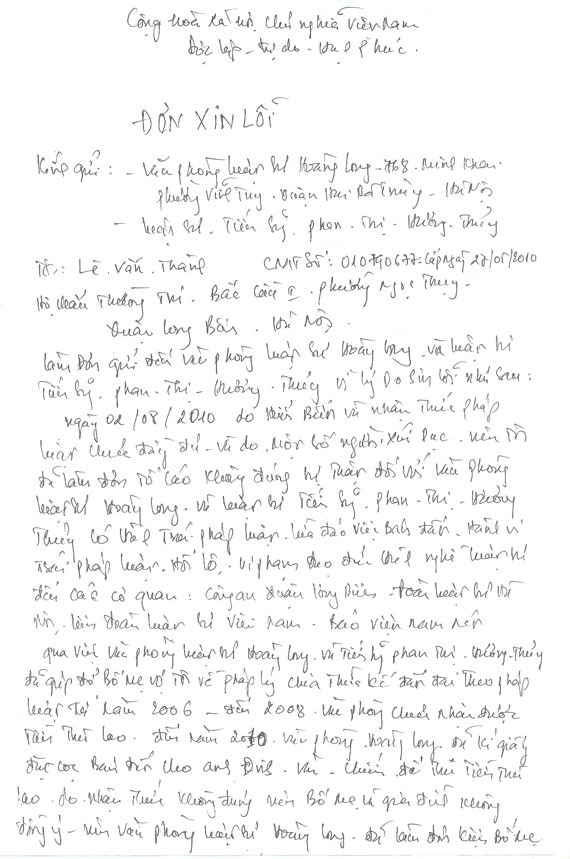 Cộng hoà xã hội chủ nghĩa Việt Nam
Độc lập - Tự do - Hạnh phúc.
ĐƠN XIN LỖI
Kính gửi : - Văn phòng luật sư Hoàng Long - 768 - Minh Khai -
phường Vĩnh Tuy - Quận Hai Bà Trưng - Hà Nội
- Luật sư - Tiến sỹ - Phan - Thị - Hương - Thủy
Tôi : Lê - Văn - Thắng CMT Số : 010790677 : Cấp ngày 27/05/2010
Hộ khẩu Thường Trú - Bắc Cầu I - phường Ngọc Thụy -
Quận Long Biên - Hà Nội .
làm đơn gửi đến văn phòng luật sư Hoàng Long - và luật sư
Tiến sỹ - phan - Thị - Hương - Thủy vì lý Do Xin lỗi như sau :
ngày 02/08/2010 do hiểu Biết và nhận Thức pháp
luật chưa đầy đủ - và do một số người xúi dục - nên Tôi
đã làm đơn Tố cáo không đúng sự Thật đối với văn phòng
luật sư Hoàng Long - và luật sư Tiến sỹ - phan - Thị - Hương
Thủy có Trái pháp luật - lừa đảo - Hành vi
Trái pháp luật - Hối lộ - vi phạm đạo đức nghề luật sư
đến các cơ quan : Công an Quận Long Biên - đoàn luật sư Hà
Nội - liên đoàn luật sư Việt Nam - Báo Việt Nam Nét
qua việc văn phòng luật sư Hoàng Long - và Tiến sỹ phan Thị - Hương - Thủy
đã giúp đỡ Bố Mẹ vợ Tôi về pháp lý chia Thừa kế đất đai Theo pháp
luật Từ năm 2006 - đến 2008 - văn phòng chưa nhận được
Tiền Thù lao - đến năm 2010 - văn phòng Hoàng Long - đã kí giấy
đặt cọc Bán đất cho anh - - Chiến để Thu Tiền Thù
lao - do nhận Thức không đúng nên Bố Mẹ và gia đình không
đồng ý - nên văn phòng luật sư Hoàng Long - đã làm đơn kiện Bố Mẹ